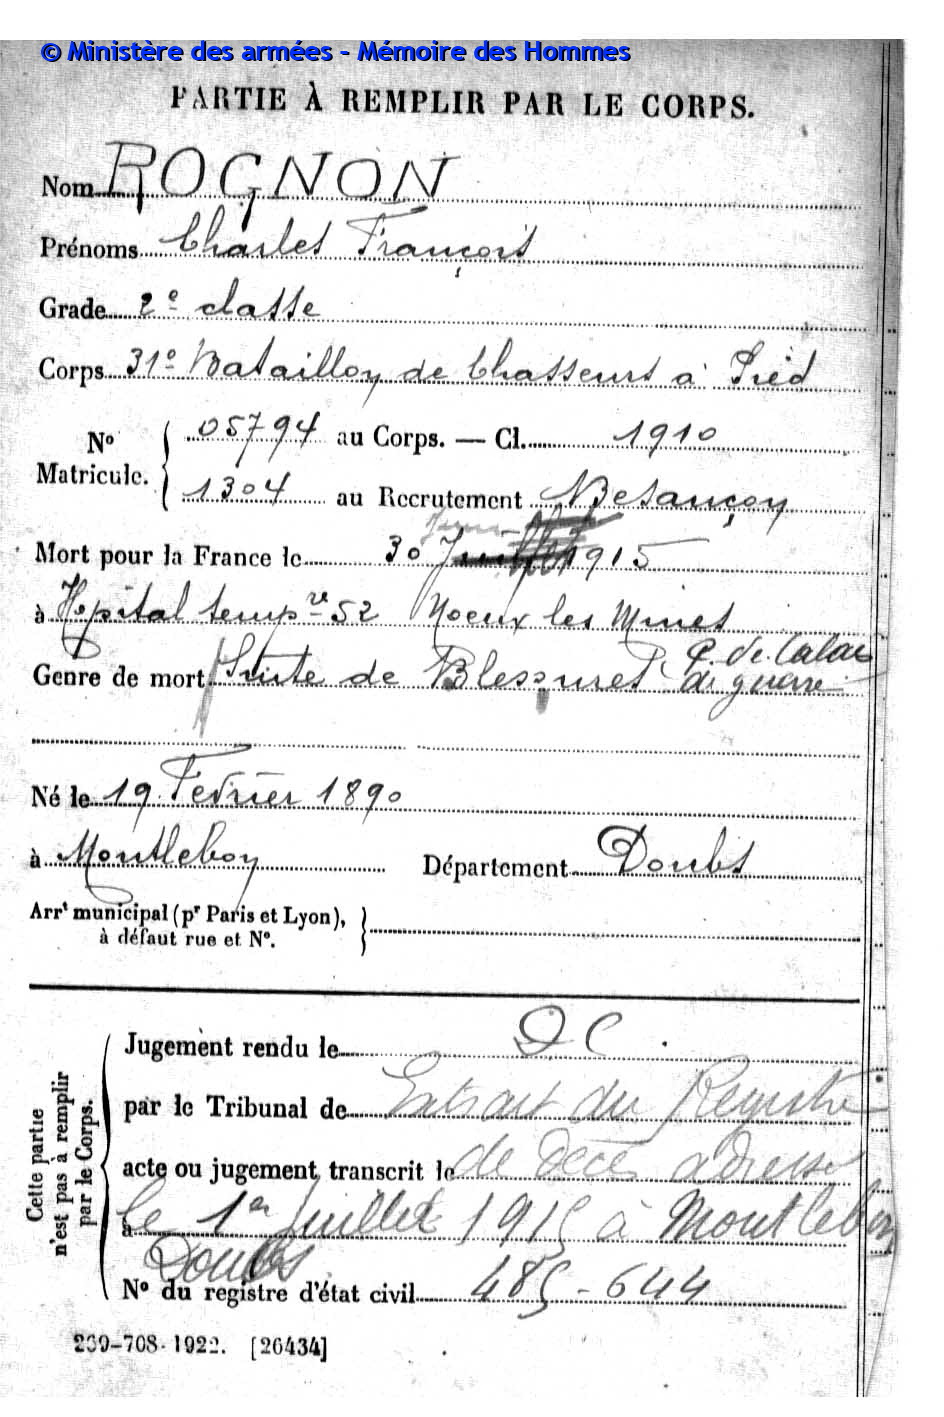 © Ministère des armées - Mémoire des Hommes
PARTIE À REMPLIR PAR LE CORPS.
Nom ROGNON
Prénoms Charles François
Grade 2e classe
Corps 31e Bataillon de Chasseurs à Pied
No Matricule. { 05794 au Corps. — Cl. 1910
1304 au Recrutement Besançon
Mort pour la France le 30 Juin 1915
à Hôpital tempre 52 Noeux les Mines
P. de Calais
Genre de mort Suite de Blessures de guerre
Né le 19 Février 1890
à Montlebon Département Doubs
Arrt municipal (pr Paris et Lyon),
à défaut rue et No.
Cette partie n'est pas à remplir par le Corps.
Jugement rendu le DC.
par le Tribunal de Extrait du Registre
acte ou jugement transcrit le de décès adressé
à le 1er Juillet 1915 à Montlebon
Doubs
No du registre d'état civil 485-644
269-708-1922. [26434]